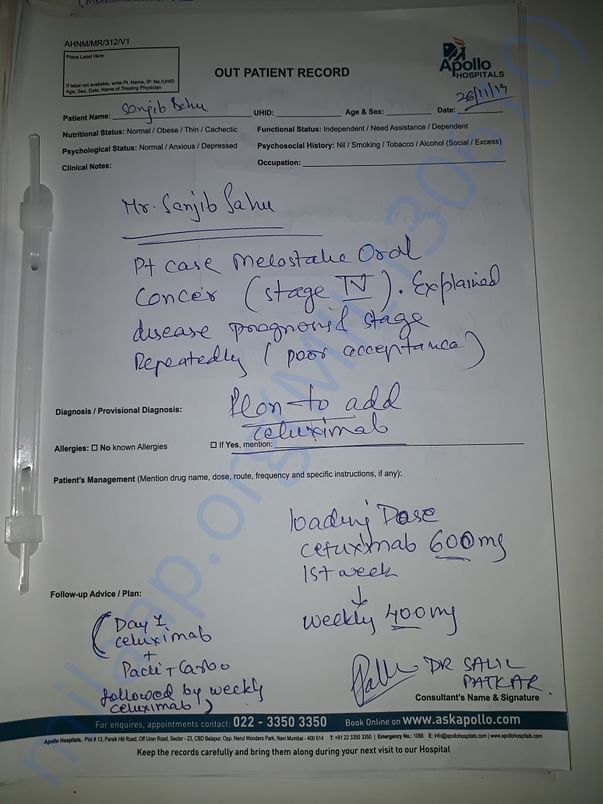 AHNM/MR/312/V1
Place Label Here
If label not available, write Pt. Name, IP No./UHID
Age, Sex, Date, Name of Treating Physician
OUT PATIENT RECORD
Apollo
HOSPITALS
Patient Name: Sanjib Sahu UHID: Age & Sex: Date: 26/11/19
Nutritional Status: Normal / Obese / Thin / Cachectic Functional Status: Independent / Need Assistance / Dependent
Psychological Status: Normal / Anxious / Depressed Psychosocial History: Nil / Smoking / Tobacco / Alcohol (Social / Excess)
Clinical Notes: Occupation:
Mr. Sanjib Sahu
Pt case Metastatic Oral
Concer (stage IV). Explained
disease prognosis stage
Repeatedly (poor acceptance)
Diagnosis / Provisional Diagnosis: Plan to add
cetuximab
Allergies: ☐ No known Allergies ☐ If Yes, mention:
Patient's Management (Mention drug name, dose, route, frequency and specific instructions, if any):
loading Dose
cetuximab 600mg
1st week
↓
weekly 400mg
Follow-up Advice / Plan:
(Day 1
cetuximab
+
Pacli + Carbo
followed by weekly
cetuximab)
DR SALIL
PATKAR.
Consultant's Name & Signature
For enquires, appointments contact: 022 - 3350 3350 Book Online on www.askapollo.com
Apollo Hospitals, Plot # 13, Parsik Hill Road, Off Uran Road, Sector - 23, CBD Belapur, Opp. Nerul Wonders Park, Navi Mumbai - 400 614 T: +91 22 3350 3350 | Emergency No.: 1066 E: info@apollohospitals.com | www.apollohospitals.com
Keep the records carefully and bring them along during your next visit to our Hospital